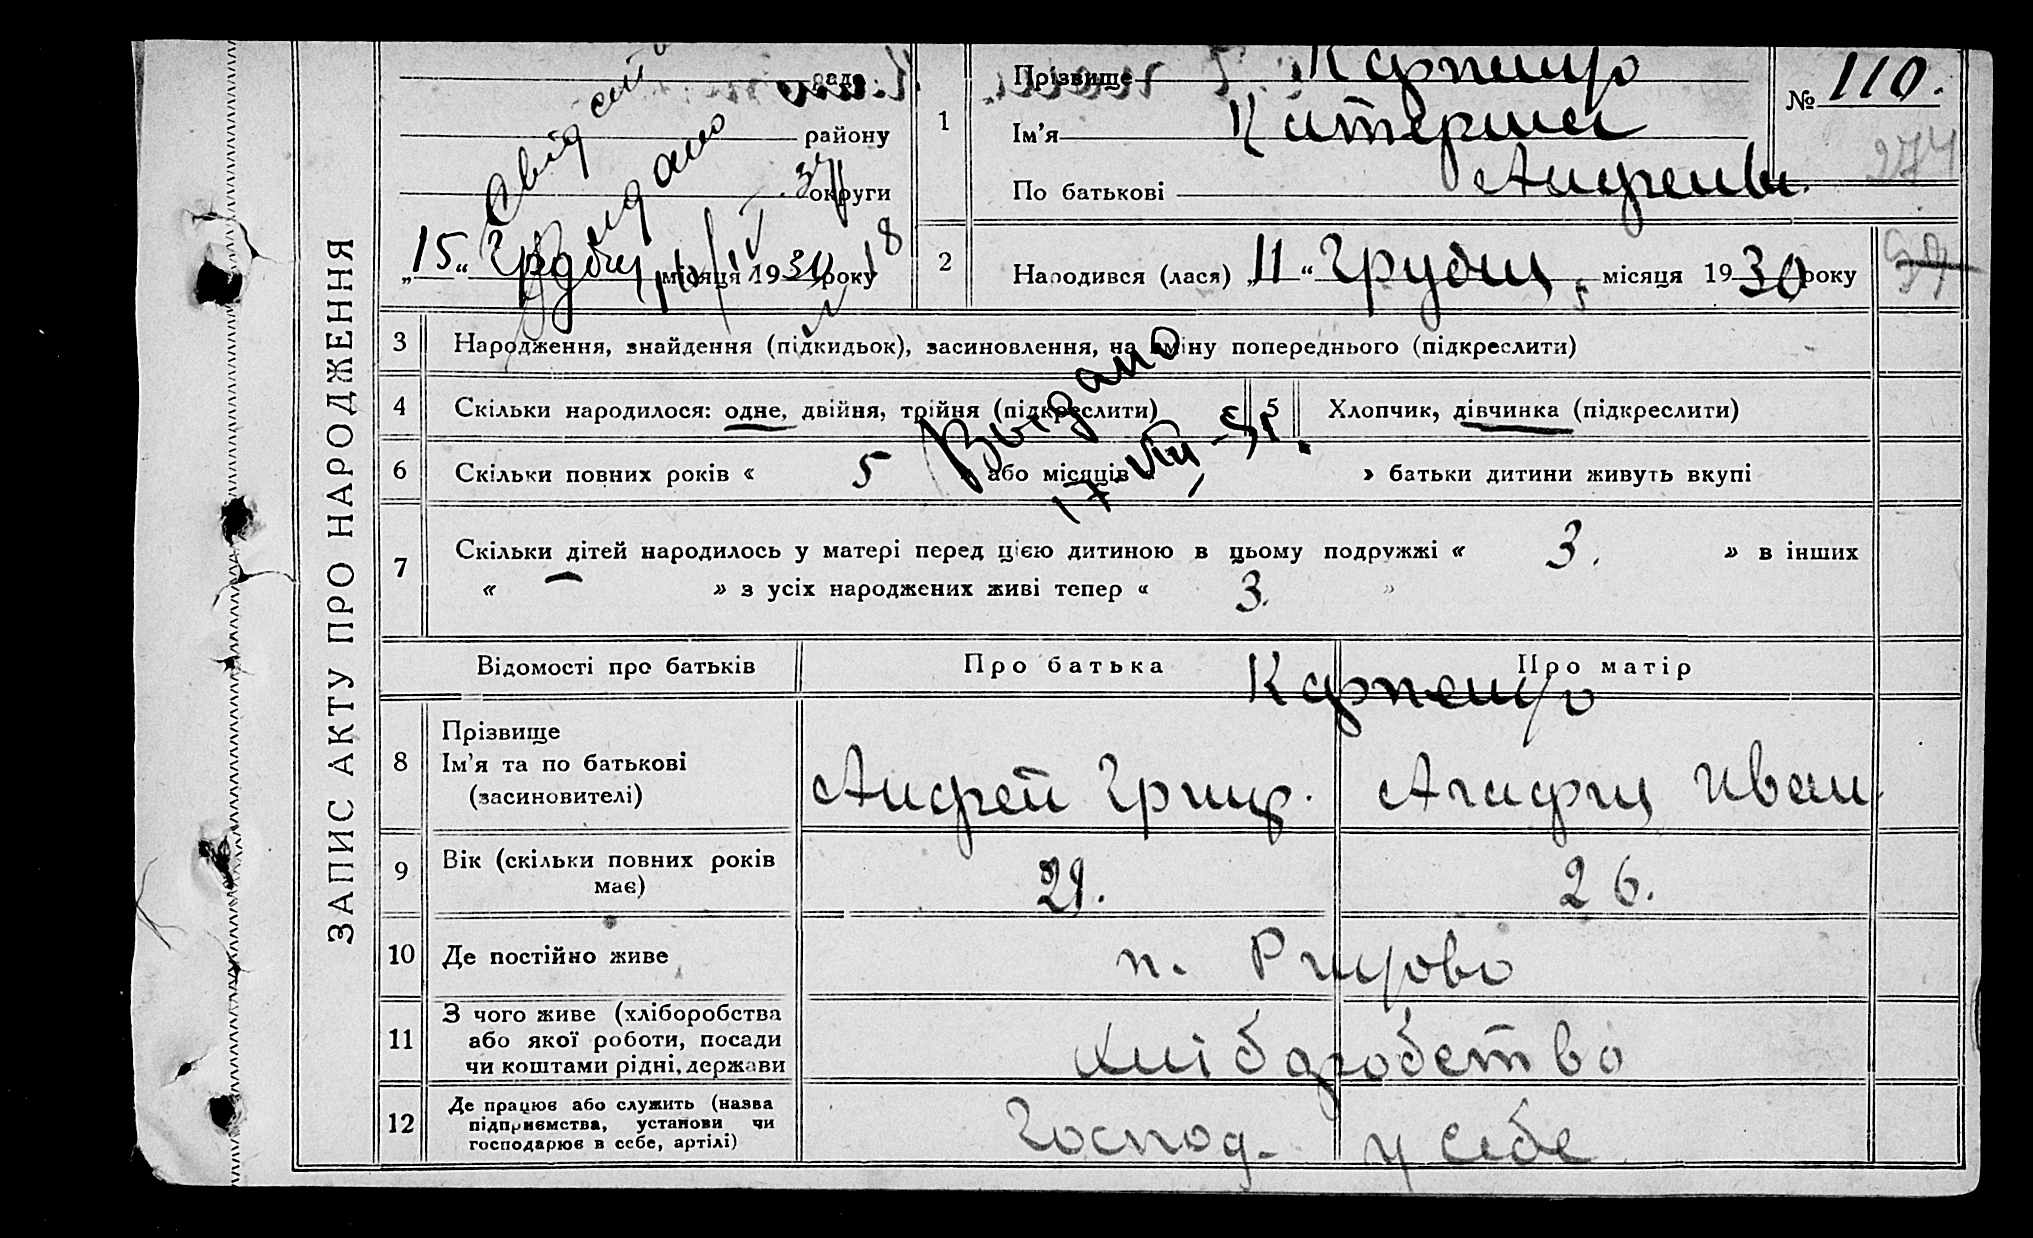 ЗАПИС АКТУ ПРО НАРОДЖЕННЯ
району
округи
„15“ Грудня місяця 1930 року
Свідоцт
Видано
1
Прізвище
Ім’я Катерина
По батькові Андреев.
№ 110.
274
2
Народився (лася) „11“ Грудня місяця 1930 року
37
3
Народження, знайдення (підкидьок), засиновлення, на зміну попереднього (підкреслити)
4
Скільки народилося: одне, двійня, трійня (підкреслити)
5
Хлопчик, дівчинка (підкреслити)
Выдано
17 VIII - 51.
6
Скільки повних років « 5 або місяців » батьки дитини живуть вкупі
7
Скільки дітей народилось у матері перед цією дитиною в цьому подружжі « 3. » в інших
« — » з усіх народжених живі тепер « 3. »
Відомості про батьків
Про батька
Про матір
8
Прізвище
Ім’я та по батькові
(засиновителі)
Андрей Григ.
Агафия Иван.
9
Вік (скільки повних років
має)
29.
26.
10
Де постійно живе
11
З чого живе (хліборобства
або якої роботи, посади
чи коштами рідні, держави
хліборобство
12
Де працює або служить (назва
підприємства, установи чи
господарює в себе, артілі)
Господ. у себе